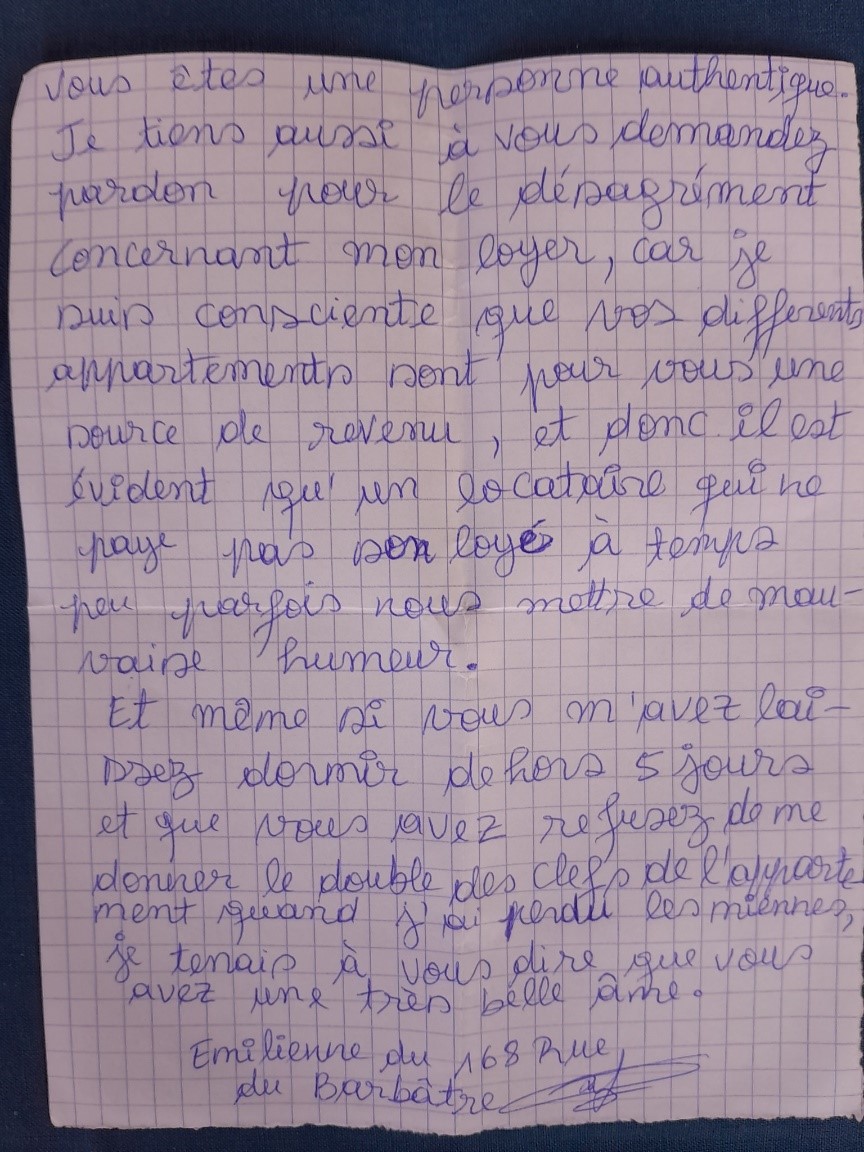 vous êtes une personne authentique.
Je tiens aussi à vous demandez
pardon pour le désagrément
concernant mon loyer, car je
suis consciente que vos differents
appartements sont pour vous une
source de revenu, et donc il est
évident qu'un locataire qui ne
paye pas son loyé à temps
peu parfois nous mettre de mau-
vaise humeur.
Et même si vous m'avez lai-
ssez dormir dehors 5 jours
et que vous avez refusez de me
donner le double des clefs de l'apparte
ment quand j'ai perdu les miennes,
je tenais à vous dire que vous
avez une très belle âme.
Emilienne du 168 Rue,
du Barbâtre